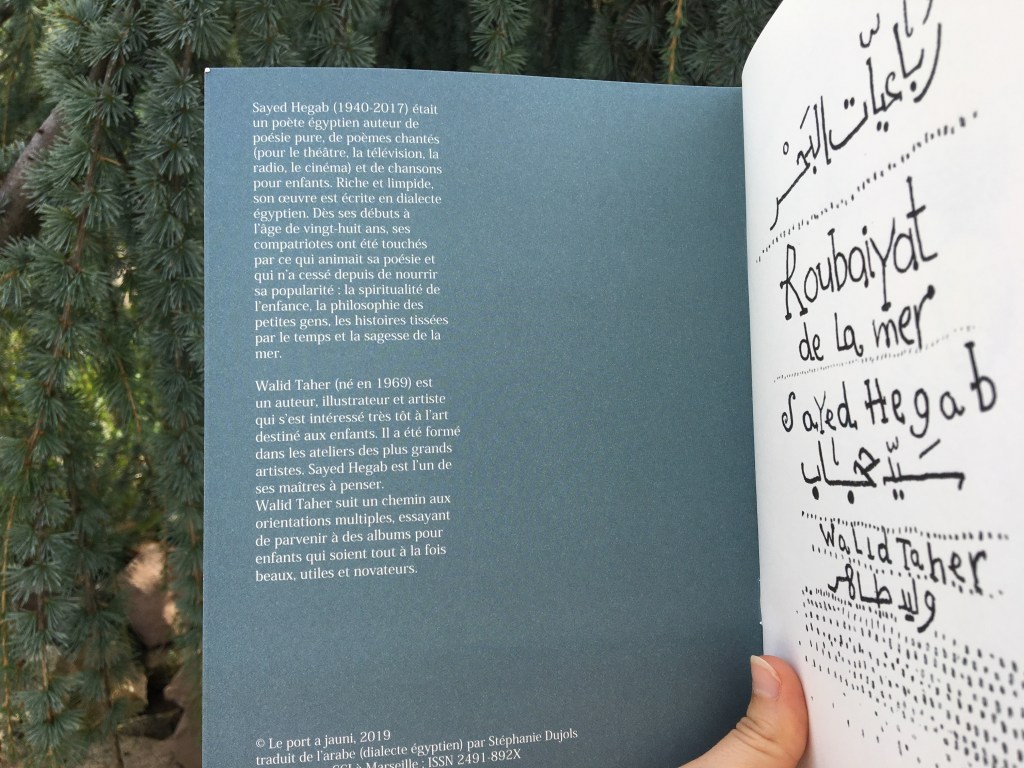 Sayed Hegab (1940-2017) était
un poète égyptien auteur de
poésie pure, de poèmes chantés
(pour le théâtre, la télévision, la
radio, le cinéma) et de chansons
pour enfants. Riche et limpide,
son œuvre est écrite en dialecte
égyptien. Dès ses débuts à
l'âge de vingt-huit ans, ses
compatriotes ont été touchés
par ce qui animait sa poésie et
qui n'a cessé depuis de nourrir
sa popularité : la spiritualité de
l'enfance, la philosophie des
petites gens, les histoires tissées
par le temps et la sagesse de la
mer.
Walid Taher (né en 1969) est
un auteur, illustrateur et artiste
qui s'est intéressé très tôt à l'art
destiné aux enfants. Il a été formé
dans les ateliers des plus grands
artistes. Sayed Hegab est l'un de
ses maîtres à penser.
Walid Taher suit un chemin aux
orientations multiples, essayant
de parvenir à des albums pour
enfants qui soient tout à la fois
beaux, utiles et novateurs.
© Le port a jauni, 2019
traduit de l'arabe (dialecte égyptien) par Stéphanie Dujols
à Marseille ; ISSN 2491-892X
رباعيات البحر
Roubaiyat
de la mer
Sayed Hegab
سيد حجاب
Walid Taher
وليد طاهر